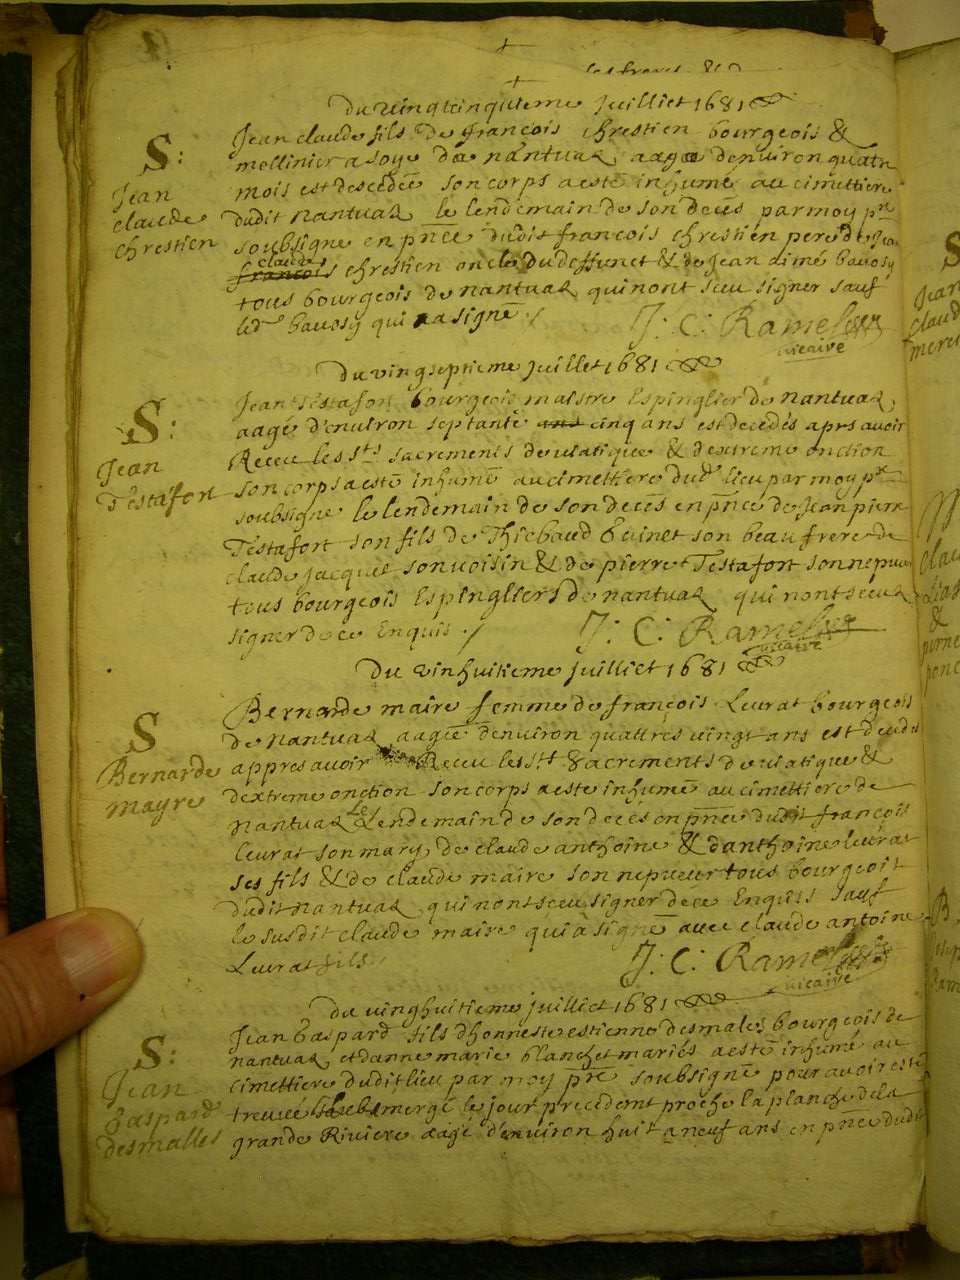 Du vingtcinquieme juilliet 1681
S:
Jean
claude
chrestien
Jean claude fils de françois chrestien bourgeois &
mollinier a soye de nantuaz aagé denviron quatre
mois est descedée son corps a esté inhumé au cimettiere
dudit nantuaz le lendemain de son deces par moy pre
soubsigne en pñce dudit francois chrestien pere de Jean
claude
francois chrestien oncle du deffunct & de Jean aimé bavosy
tous bourgeois de nantuaz qui nont sceu signer sauf
led bavosy qui a signé ./ J: C: Ramel
vicaire
Du vingseptieme juillet 1681
S:
Jean
Testafort
Jean Testafort bourgeois maistre Espinglier de nantuaz
aagé d'environ septante and cinq ans est decedés aprs avoir
Receu les sts sacrements de viatique & d'extreme onction
son corps a esté inhumé au cimettiere dud lieu par moy pre
soubsigne le lendemain de son deces en pñce de Jean pierre
Testafort son fils de Thiebaud son beau frere de
claude jacquet son voisin & de pierre Testafort son nepueu
tous bourgeois Espingliers de nantuaz qui nont sceuz
signer de ce Enquis ./ J: C: Ramel
vicaire
Du vinhuitieme juilliet 1681
S
Bernarde
mayre
Bernarde maire femme de françois Leurat bourgeois
de nantuaz aagée denviron quattres vingt ans est decedes
appres avoir Receu les sts Sacrements de viatique &
dextreme onction son corps a este inhumé au cimettiere de
nantuaz Le Lendemain de son deces en pñce dudit françois
leurat son mary de claude anthoine & danthoine leurat
ses fils & de claude maire son nepueur tous bourgeois
dudit nantuaz qui nont sceu signer de ce Enquis sauf
le susdit claude maire qui à signe avec claude antoine
Leurat fils. J: C: Ramel
vicaire
Du vinghuitieme juilliet 1681
S:
Jean
gaspard
desmalles
Jean Gaspard fils dhonneste estienne desmales bourgeois de
nantuaz et danne marie blanchet mariés a esté inhume au
cimettiere dudit lieu par moy pre soubsigné pour avoir esté
treuvé submergé le jour precedent proche la planche de la
grande Riviere aagé d'environ huit a neuf ans en pñce dudit